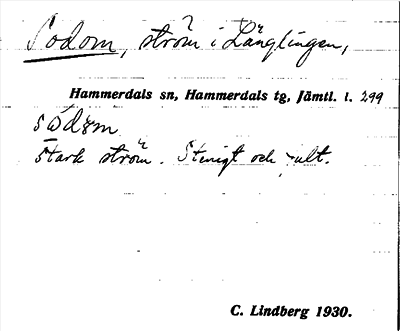 Sodom, ström i Långlingen,
Hammerdals sn, Hammerdals tg, Jämtl. l. 299
stark ström. Stenigt och
C. Lindberg 1930.